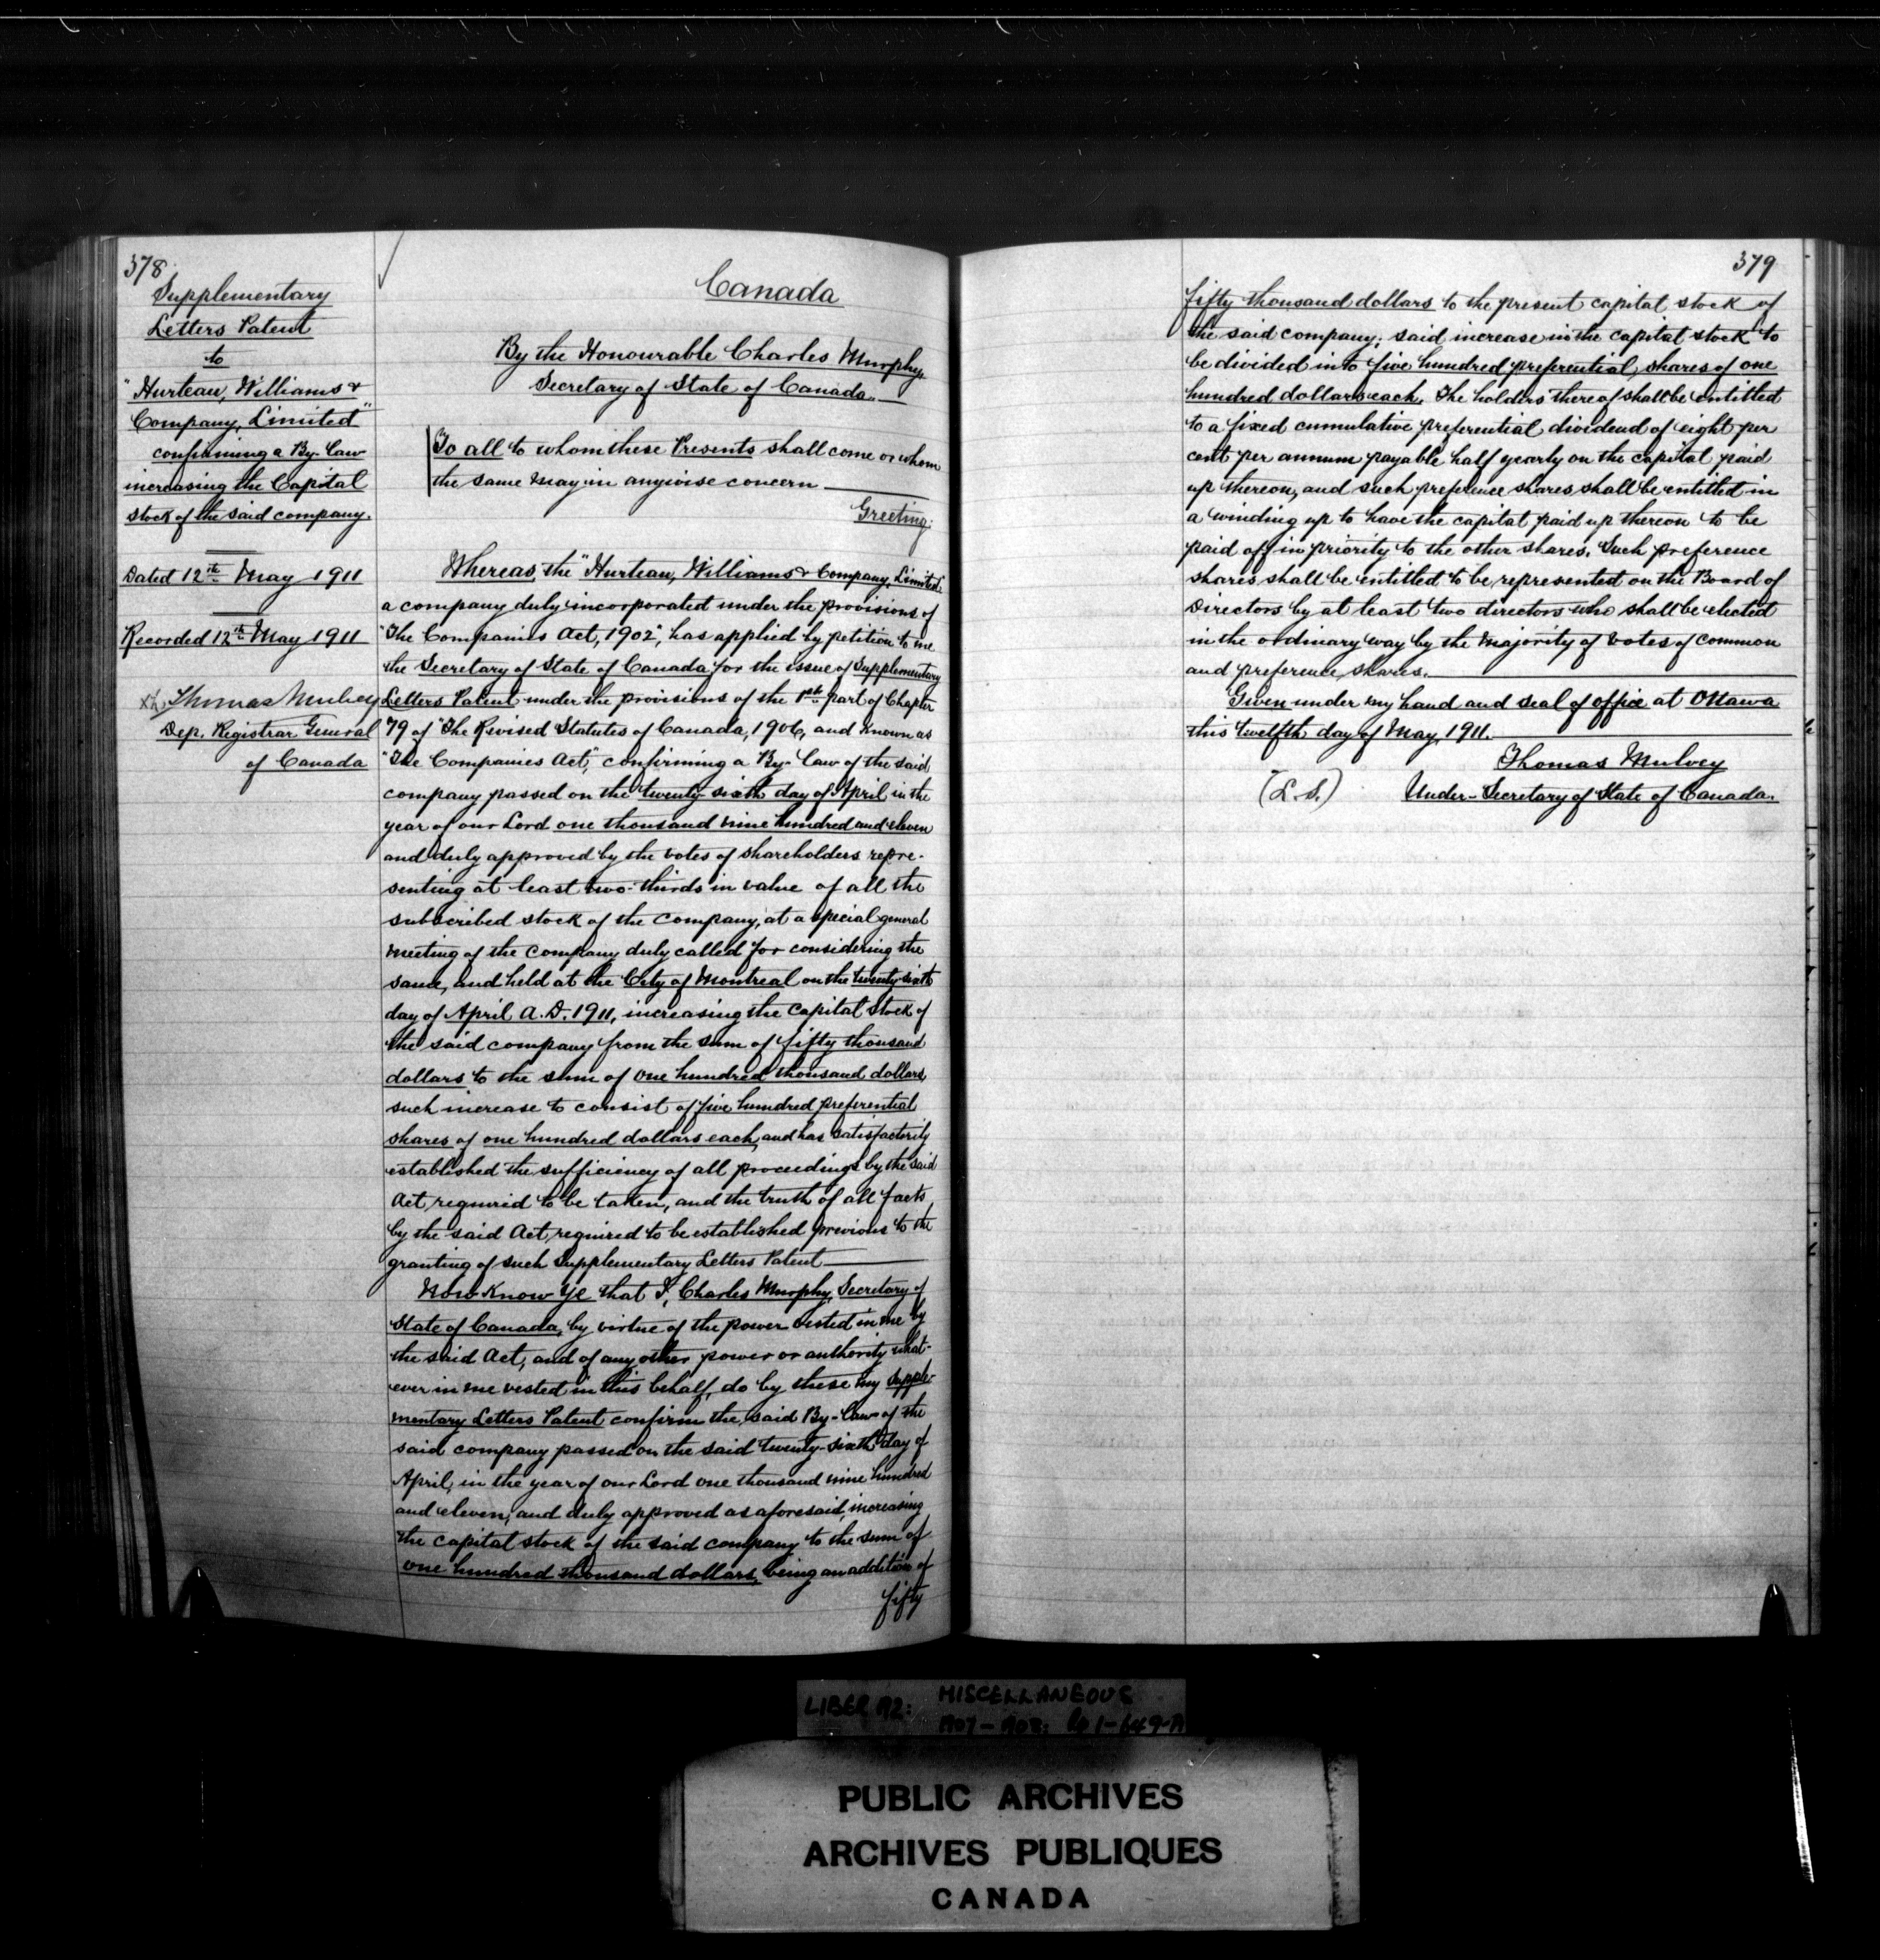 378
Supplementary
Letters Patent
to
"Hurteau, Williams &
Company, Limited"
confirming a By-law
increasing the Capital
stock of the said company.
Dated 12th May 1911
Recorded 12th May 1911
Thomas Mulvey
Dep. Registrar General
of Canada
Canada
By the Honourable Charles Murphy,
Secretary of State of Canada.
To all to whom these Presents shall come or whom
the same may in anywise concern
Greeting:
Whereas, the "Hurteau, Williams & Company, Limited"
a company duly incorporated under the provisions of
"The Companies Act, 1902", has applied by petition to me
the Secretary of State of Canada for the issue of Supplementary
Letters Patent under the provisions of the 1st part of Chapter
79 of "The Revised Statutes of Canada, 1906, and known as
"The Companies Act", confirming a By-law of the said
company passed on the twenty-sixth day of April in the
year of our Lord one thousand nine hundred and eleven
and duly approved by the votes of shareholders repre-
senting at least two-thirds in value of all the
subscribed stock of the Company, at a special general
meeting of the Company duly called for considering the
same, and held at the City of Montreal on the twenty-sixth
day of April A.D. 1911, increasing the capital stock of
the said company from the sum of fifty thousand
dollars to the sum of one hundred thousand dollars,
such increase to consist of five hundred preferential
shares of one hundred dollars each, and has satisfactorily
established the sufficiency of all proceedings by the said
Act required to be taken, and the truth of all facts
by the said Act required to be established previous to the
granting of such Supplementary Letters Patent
Now Know Ye that I, Charles Murphy, Secretary of
State of Canada, by virtue of the power vested in me by
the said Act, and of any other power or authority what-
ever in me vested in this behalf, do by these my Supple-
mentary Letters Patent confirm the said By-law of the
said company passed on the said twenty-sixth day of
April, in the year of our Lord one thousand nine hundred
and eleven, and duly approved as aforesaid, increasing
the capital stock of the said company to the sum of
one hundred thousand dollars, being an addition of
fifty
379
fifty thousand dollars to the present capital stock of
the said company; said increase in the capital stock to
be divided into five hundred preferential shares of one
hundred dollars each. The holders thereof shall be entitled
to a fixed cumulative preferential dividend of eight per
cent per annum payable half yearly on the capital paid
up thereon, and such preference shares shall be entitled in
a winding up to have the capital paid up thereon to be
paid off in priority to the other shares. Such preference
shares shall be entitled to be represented on the Board of
Directors by at least two directors who shall be elected
in the ordinary way by the majority of votes of common
and preference shares.
Given under my hand and seal of office at Ottawa
this twelfth day of May, 1911.
Thomas Mulvey
(L.S.) Under-Secretary of State of Canada.
LIBER 192: MISCELLANEOUS
PUBLIC ARCHIVES
ARCHIVES PUBLIQUES
CANADA